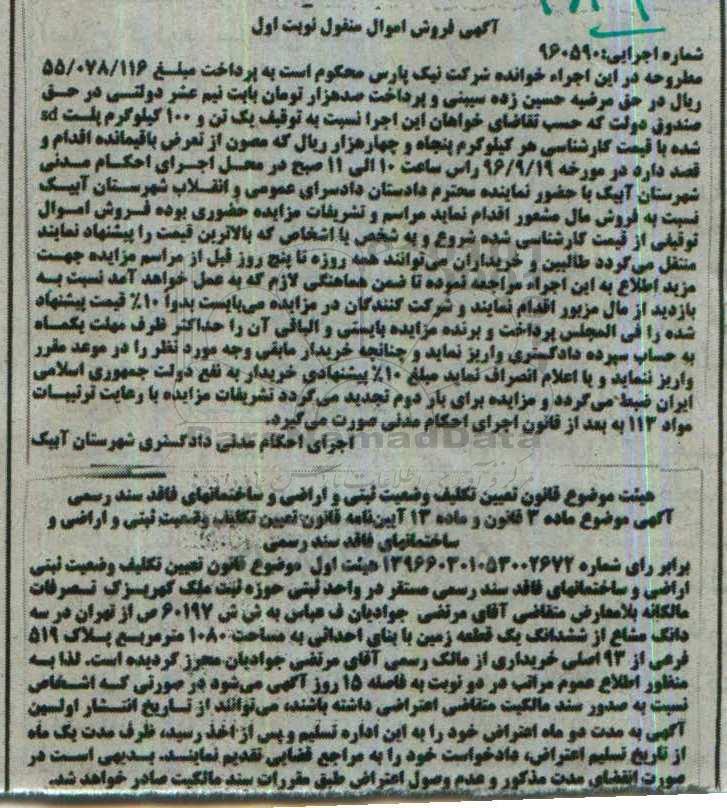 آگهی فروش اموال منقول نوبت اول
شماره اجرایی: ۹۶۰۵۹۰
مطروحه در این اجراء خوانده شرکت نیک پارس محکوم است به پرداخت مبلغ ۵۵/۰۷۸/۱۱۶
ریال در حق مرضیه حسین زده سیبنی و پرداخت صدهزار تومان بابت نیم عشر دولتی در حق
صندوق دولت که حسب تقاضای خواهان این اجرا نسبت به توقیف یک تن و ۱۰۰ کیلوگرم پلت sd
شده با قیمت کارشناسی هر کیلوگرم پنجاه و چهارهزار ریال که مصون از تعرض باقیمانده اقدام و
قصد دارد در مورخه ۹۶/۹/۱۹ راس ساعت ۱۰ الی ۱۱ صبح در محل اجرای احکام مدنی
شهرستان آبیک با حضور نماینده محترم دادستان دادسرای عمومی و انقلاب شهرستان آبیک
نسبت به فروش مال مشعور اقدام نماید مراسم و تشریفات مزایده حضوری بوده فروش اموال
توقیفی از قیمت کارشناسی شده شروع و به شخص یا اشخاص که بالاترین قیمت را پیشنهاد نمایند
منتقل می‌گردد طالبین و خریداران می‌توانند همه روزه تا پنج روز قبل از مراسم مزایده جهت
مزید اطلاع به این اجراء مراجعه نموده تا ضمن هماهنگی لازم که به عمل خواهد آمد نسبت به
بازدید از مال مزبور اقدام نمایند و شرکت کنندگان در مزایده می‌بایست بدوا ۱۰٪ قیمت پیشنهاد
شده را فی المجلس پرداخت و برنده مزایده بایستی و الباقی آن را حداکثر ظرف مهلت یکماه
به حساب سپرده دادگستری واریز نماید و چنانچه خریدار مابقی وجه مورد نظر را در موعد مقرر
واریز ننماید و یا اعلام انصراف نماید مبلغ ۱۰٪ پیشنهادی خریدار به نفع دولت جمهوری اسلامی
ایران ضبط می‌گردد و مزایده برای بار دوم تجدید می‌گردد تشریفات مزایده با رعایت ترتیبات
مواد ۱۱۳ به بعد از قانون اجرای احکام مدنی صورت می‌گیرد.
اجرای احکام مدنی دادگستری شهرستان آبیک
هیئت موضوع قانون تعیین تکلیف وضعیت ثبتی و اراضی و ساختمانهای فاقد سند رسمی
آگهی موضوع ماده ۳ قانون و ماده ۱۳ آیین‌نامه قانون تعیین تکلیف وضعیت ثبتی و اراضی و
ساختمانهای فاقد سند رسمی
برابر رای شماره ۱۳۹۶۶۰۳۰۱۰۵۳۰۰۲۶۷۲ هیئت اول موضوع قانون تعیین تکلیف وضعیت ثبتی
اراضی و ساختمانهای فاقد سند رسمی مستقر در واحد ثبتی حوزه ثبت ملک کهریزک تصرفات
مالکانه بلامعارض متقاضی آقای مرتضی جوادیان ف عباس به ش ش ۶۰۱۹۷ ص از تهران در سه
دانگ مشاع از ششدانگ یک قطعه زمین با بنای احداثی به مساحت ۱۰۸۰ مترمربع پلاک ۵۱۹
فرعی از ۹۳ اصلی خریداری از مالک رسمی آقای مرتضی جوادیان محرز گردیده است. لذا به
منظور اطلاع عموم مراتب در دو نوبت به فاصله ۱۵ روز آگهی می‌شود در صورتی که اشخاص
نسبت به صدور سند مالکیت متقاضی اعتراضی داشته باشند، می‌توانند از تاریخ انتشار اولین
آگهی به مدت دو ماه اعتراض خود را به این اداره تسلیم و پس از اخذ رسید، ظرف مدت یک ماه
از تاریخ تسلیم اعتراض، دادخواست خود را به مراجع قضایی تقدیم نمایند. بدیهی است در
صورت انقضای مدت مذکور و عدم وصول اعتراض طبق مقررات سند مالکیت صادر خواهد شد.